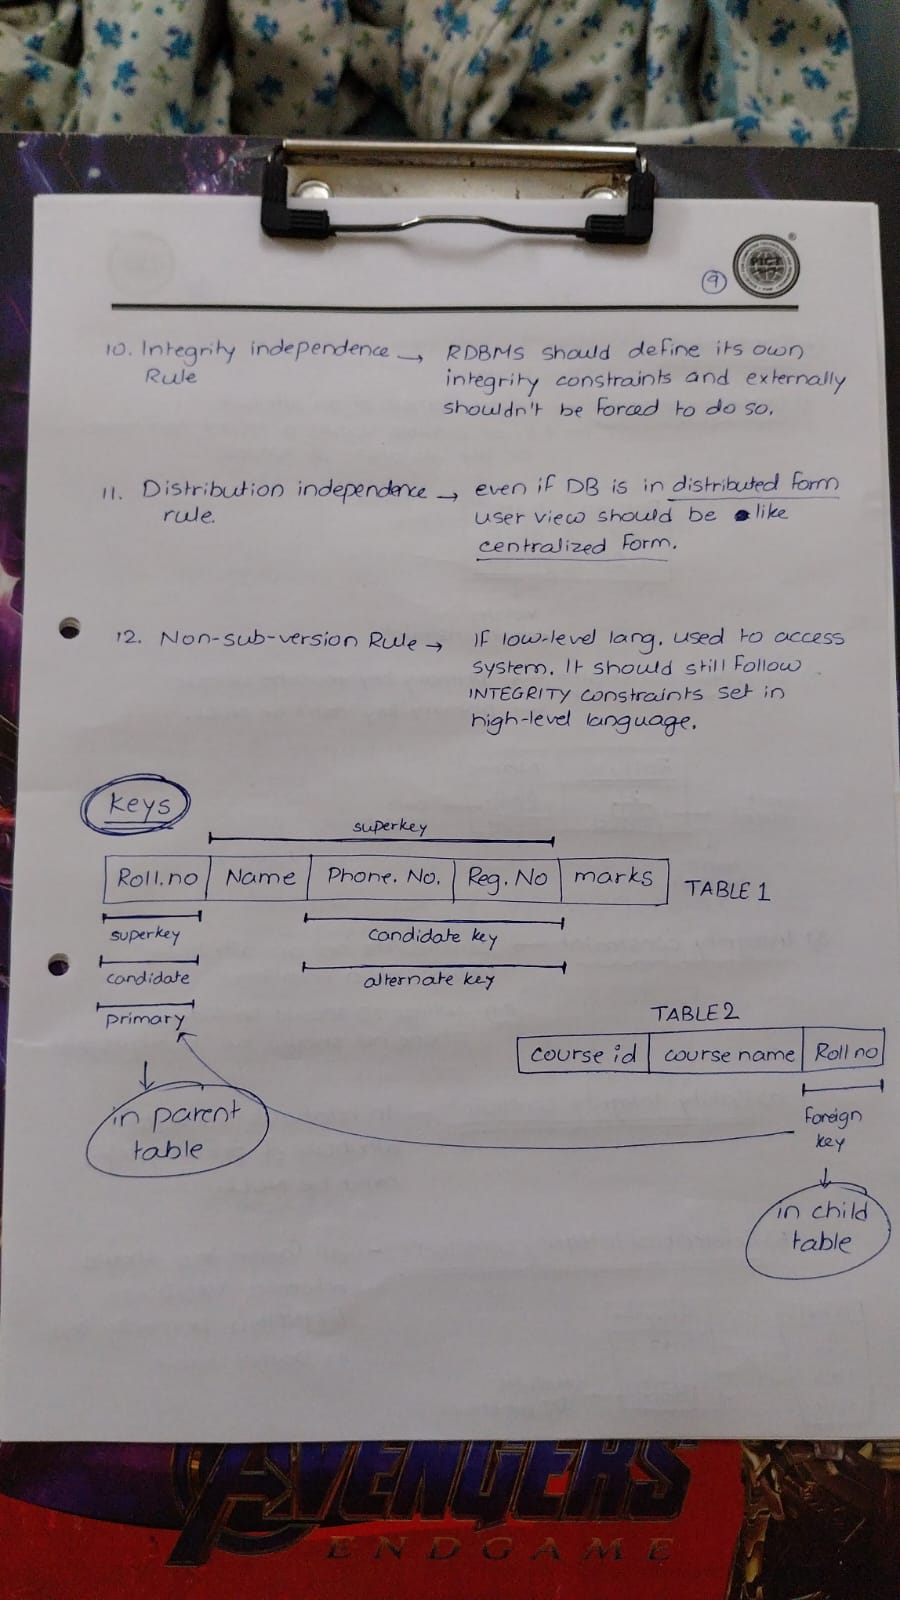 9
PICT
10. Integrity independence → RDBMS should define its own
Rule integrity constraints and externally
shouldn't be forced to do so.
11. Distribution independence → even if DB is in distributed form
rule. user view should be like
centralized form.
12. Non-sub-version Rule → If low-level lang. used to access
system. It should still follow
INTEGRITY constraints set in
high-level language.
keys
superkey
Roll.no Name Phone. No. Reg. No marks TABLE 1
superkey candidate key
candidate alternate key
primary
TABLE 2
course id course name Roll no
foreign
key
in parent
table
in child
table
AVENGERS
ENDGAME